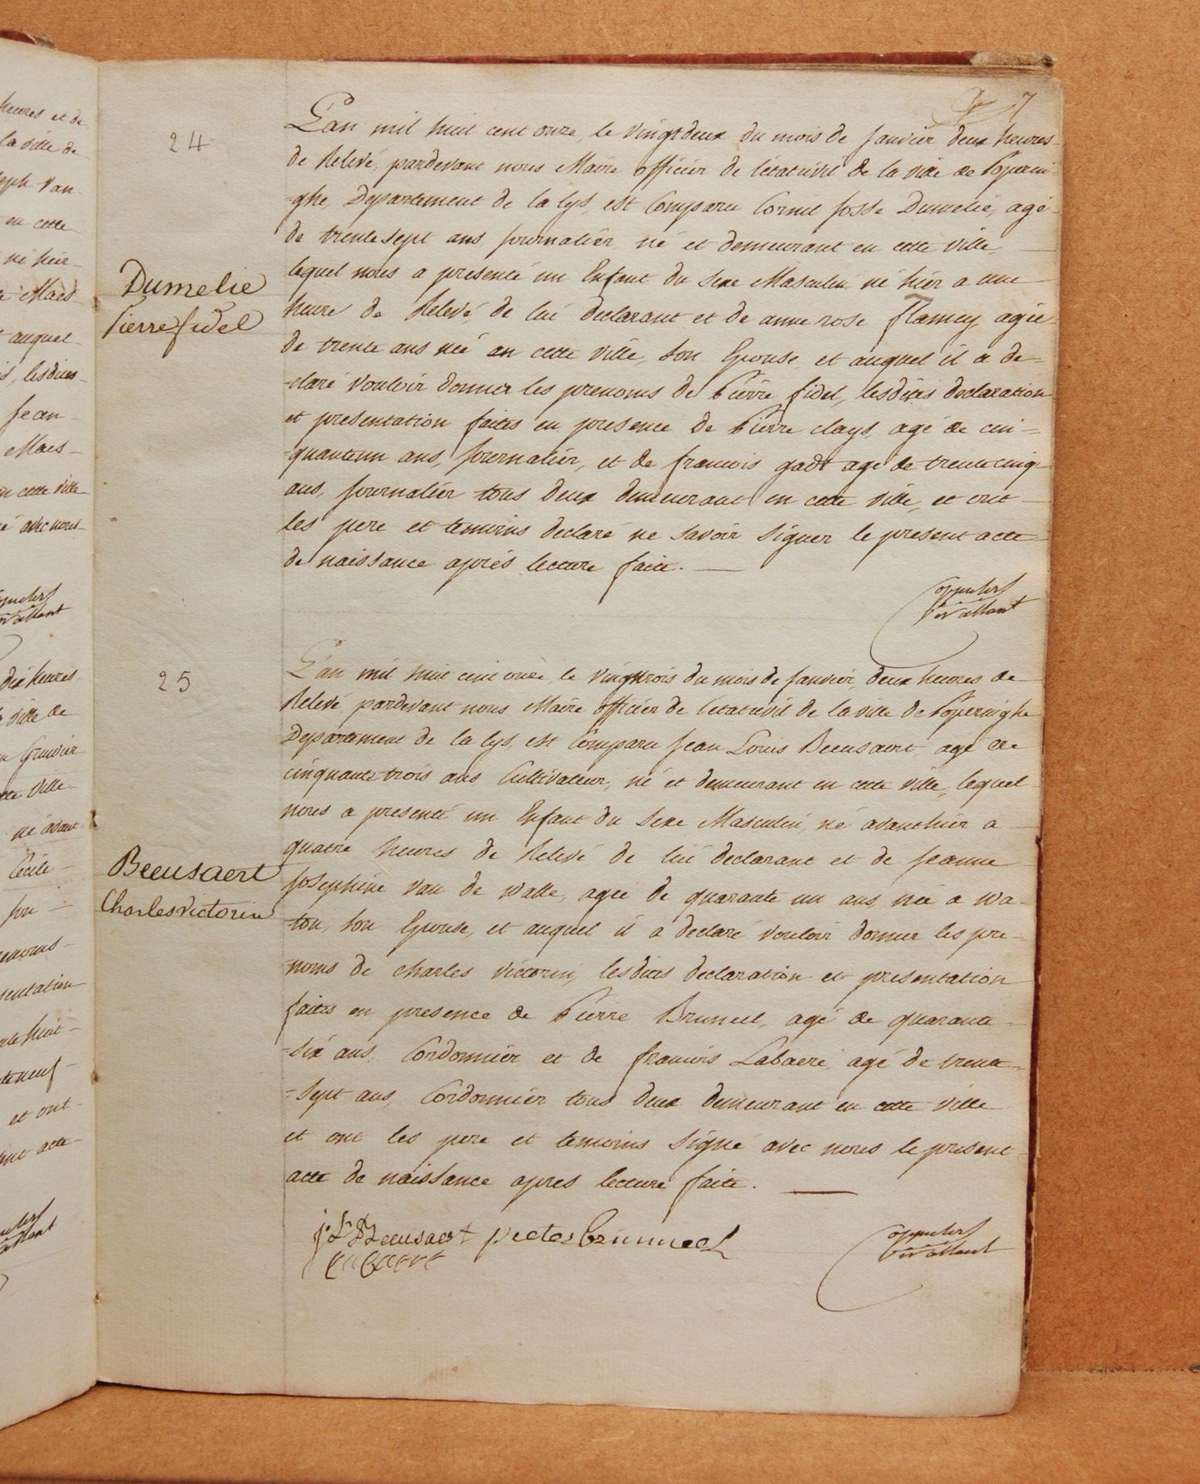 heures et de
la ville de
seph Van
en cette
né hier
Maes
auquel
lesdites
Jean
Maes
en cette ville
avec nous
dix heures
ville de
ville
né avant
Cécile
et ont
acte
7
24
Dumelie
Pierre fidel
L'an mil huit cent onze le vingtdeux du mois de Janvier deux heures
de Relevé, pardevant nous Maire officier de l'état civil de la ville de Poperin
-ghe, Departement de la lys, est Comparu Cornil Josse Dumelie, agé
de trente sept ans journalier né et demeurant en cette ville
lequel nous a presenté un Enfant du sexe Masculin né hier a une
heure de Relevé, de lui declarant et de anne rose flamey agée
de trente ans née en cette ville, son Epouse, et auquel il a de-
-claré vouloir donner les prenoms de Pierre fidel, lesdites declaration
et presentation faites en presence de Pierre clays, agé de cin-
-quanteun ans, journalier, et de francois gadt agé de trentecinq
ans, journalier tous deux demeurant en cette ville, et ont
les pere et temoins declaré ne savoir signer le present acte
de naissance après lecture faite.
25
Beeusaert
Charles Victorin
L'an mil huit cent onze, le vingttrois du mois de Janvier, deux heures de
Relevé pardevant nous Maire officier de l'état civil de la ville de Poperinghe
Departement de la lys, est Comparu Jean Louis Beeusaert agé de
cinquante trois ans Cultivateur, né et demeurant en cette ville, lequel
nous a presenté un Enfant du sexe Masculin, né avanthier a
quatre heures de Relevé de lui declarant et de Jeanne
Josephine Van de Walle, agée de quarante un ans, née a Wa-
-tou, son Epouse, et auquel il a declaré vouloir donner les pre-
-noms de Charles Victorin, lesdites declaration et presentation
faites en presence de Pierre Bruneel, agé de quarante
-six ans Cordonnier et de francois Labaere agé de trente
-sept ans, Cordonnier tous deux demeurant en cette ville
et ont les pere et temoins signé avec nous le present
acte de naissance apres lecture faite.
J: L: Beeusaert pieter brunneel